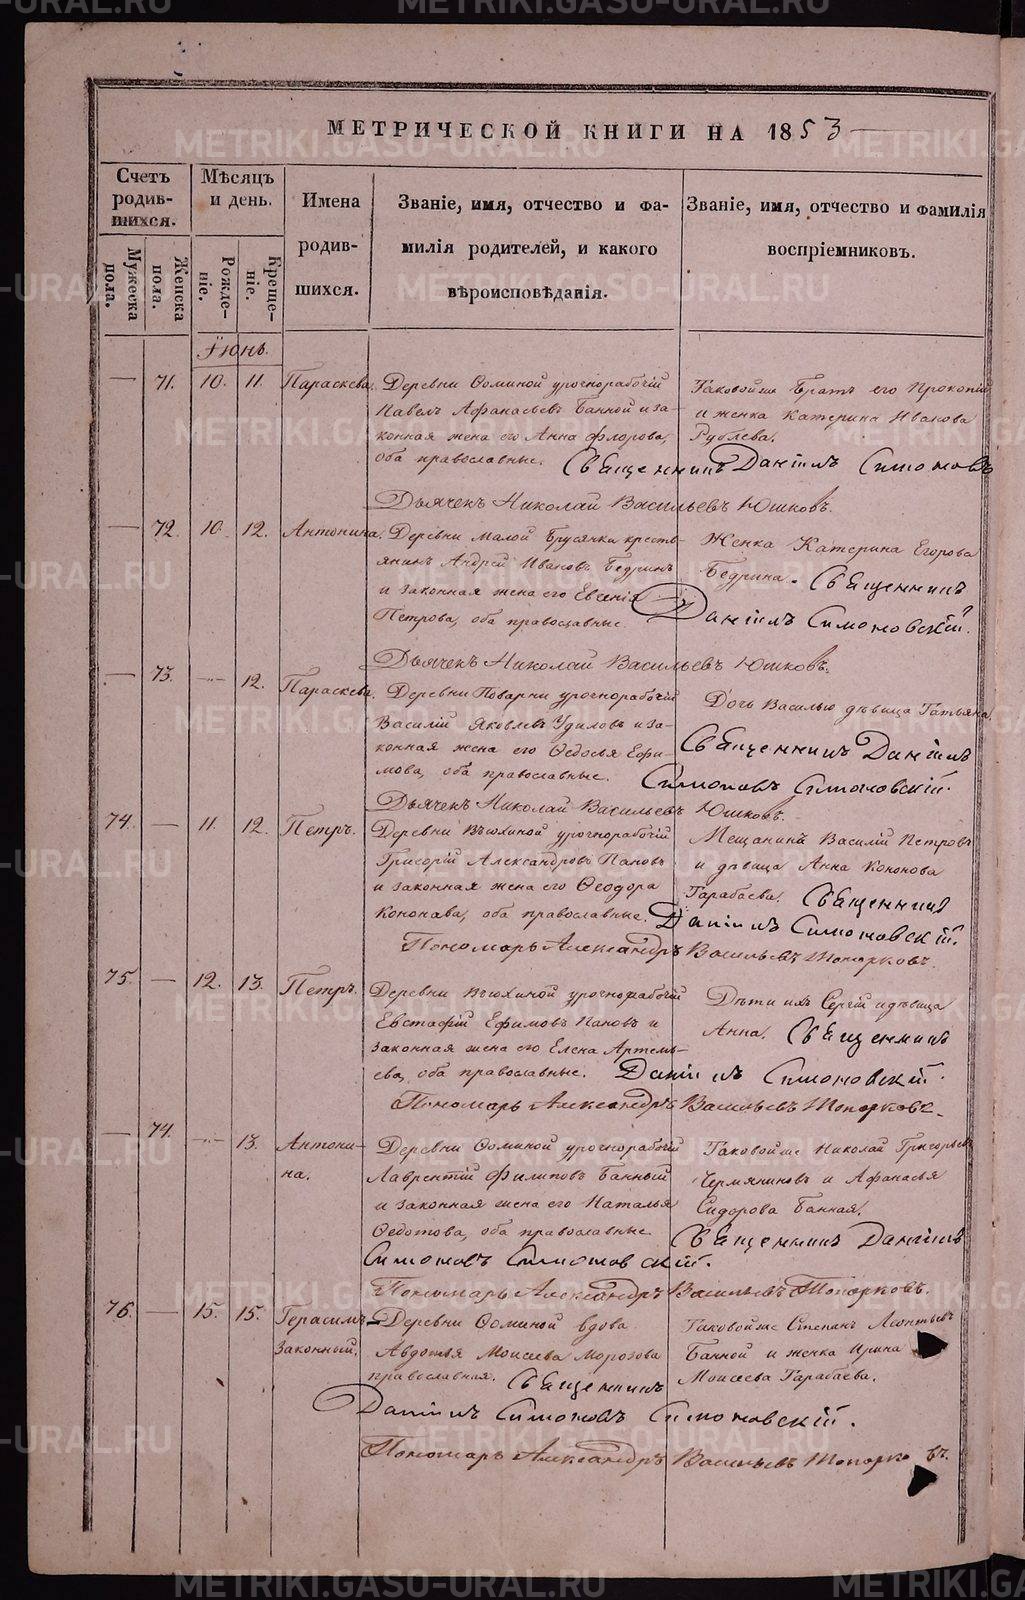 МЕТРИЧЕСКОЙ КНИГИ НА 1853
Счетъ родив-шихся.
Мѣсяцъ и день.
Имена родив-шихся.
Званіе, имя, отчество и фа-
милія родителей, и какого
вѣроисповѣданія.
Званіе, имя, отчество и фамилія
воспріемниковъ.
Мужеска пола.
Женска пола.
Рожде-ніе.
Креще-ніе.
Іюнь.
— 71. 10. 11. Параскева.
Деревни Ѳоминой урочнорабочій
Павелъ Афанасьевъ Банной и за-
конная жена его Анна Флорова,
оба православные.
Таковойже Братъ его Прокопій
и женка Катерина Иванова
Рублева.
Священникъ Даніилъ Симоновъ
Дьячекъ Николай Васильевъ Юшковъ.
— 72. 10. 12. Антонина.
Деревни Малой Брусянки кресть-
янинъ Андрей Ивановъ Бедринъ
и законная жена его Евгенія
Петрова, оба православные.
Женка Катерина Егорова
Бедрина. Священникъ
Даніилъ Симоновскій.
Дьячекъ Николай Васильевъ Юшковъ.
— 73. — 12. Параскева.
Деревни Поварни урочнорабочій
Василій Яковлевъ Удиловъ и за-
конная жена его Ѳедосья Ефи-
мова, оба православные.
Дочь Василью дѣвица Татьяна
Священникъ Даніилъ
Симоновъ Симоновскій.
Дьячекъ Николай Васильевъ Юшковъ.
74. — 11. 12. Петръ.
Деревни Вьюхиной урочнорабочій
Григорій Александровъ Пановъ
и законная жена его Ѳеодора
Кононава, оба православные.
Мещанинъ Василій Петровъ
и дѣвица Анна Кононова
Тарабаева. Священникъ
Даніилъ Симоновскій.
Пономарь Александръ Васильевъ Топорковъ.
75. — 12. 13. Петръ.
Деревни Вьюхиной урочнорабочій
Евстафій Ефимовъ Пановъ и
законная жена его Елена Артемь-
ева, оба православные.
Дѣти ихъ Сергій и дѣвица
Анна. Священникъ
Даніилъ Симоновскій.
Пономарь Александръ Васильевъ Топорковъ.
— 74. — 13. Антони-
на.
Деревни Ѳоминой урочнорабочій
Лаврентій Филиповъ Банный
и законная жена его Наталья
Ѳедотова, оба православные.
Таковойже Николай Григорьевъ
Чермяниновъ и Афанасья
Сидорова Банная.
Священникъ Даніилъ
Симоновъ Симоновскій.
Пономарь Александръ Васильевъ Топорковъ.
76. — 15. 15. Герасимъ
Законный.
Деревни Ѳоминой вдова
Авдотья Моисеева Морозова
православная. Священникъ
Таковойже Степанъ Леонтьевъ
Банной и женка Ирина
Моисеева Тарабаева.
Даніилъ Симоновъ Симоновскій.
Пономарь Александръ Васильевъ Топорковъ.
METRIKI.GASO-URAL.RU